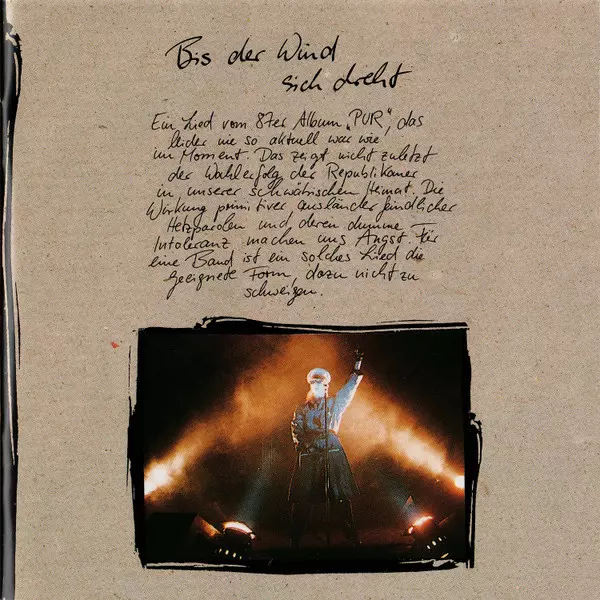 Bis der Wind
sich dreht
Ein Lied vom 87er Album „PUR“, das
leider nie so aktuell war wie
im Moment. Das zeigt nicht zuletzt
der Wahlerfolg der Republikaner
in unserer schwäbischen Heimat. Die
Wirkung primitiver ausländerfeindlicher
Hetzparolen und deren dumme
Intoleranz machen uns Angst. Für
eine Band ist ein solches Lied die
geeignete Form, dazu nicht zu
schweigen.